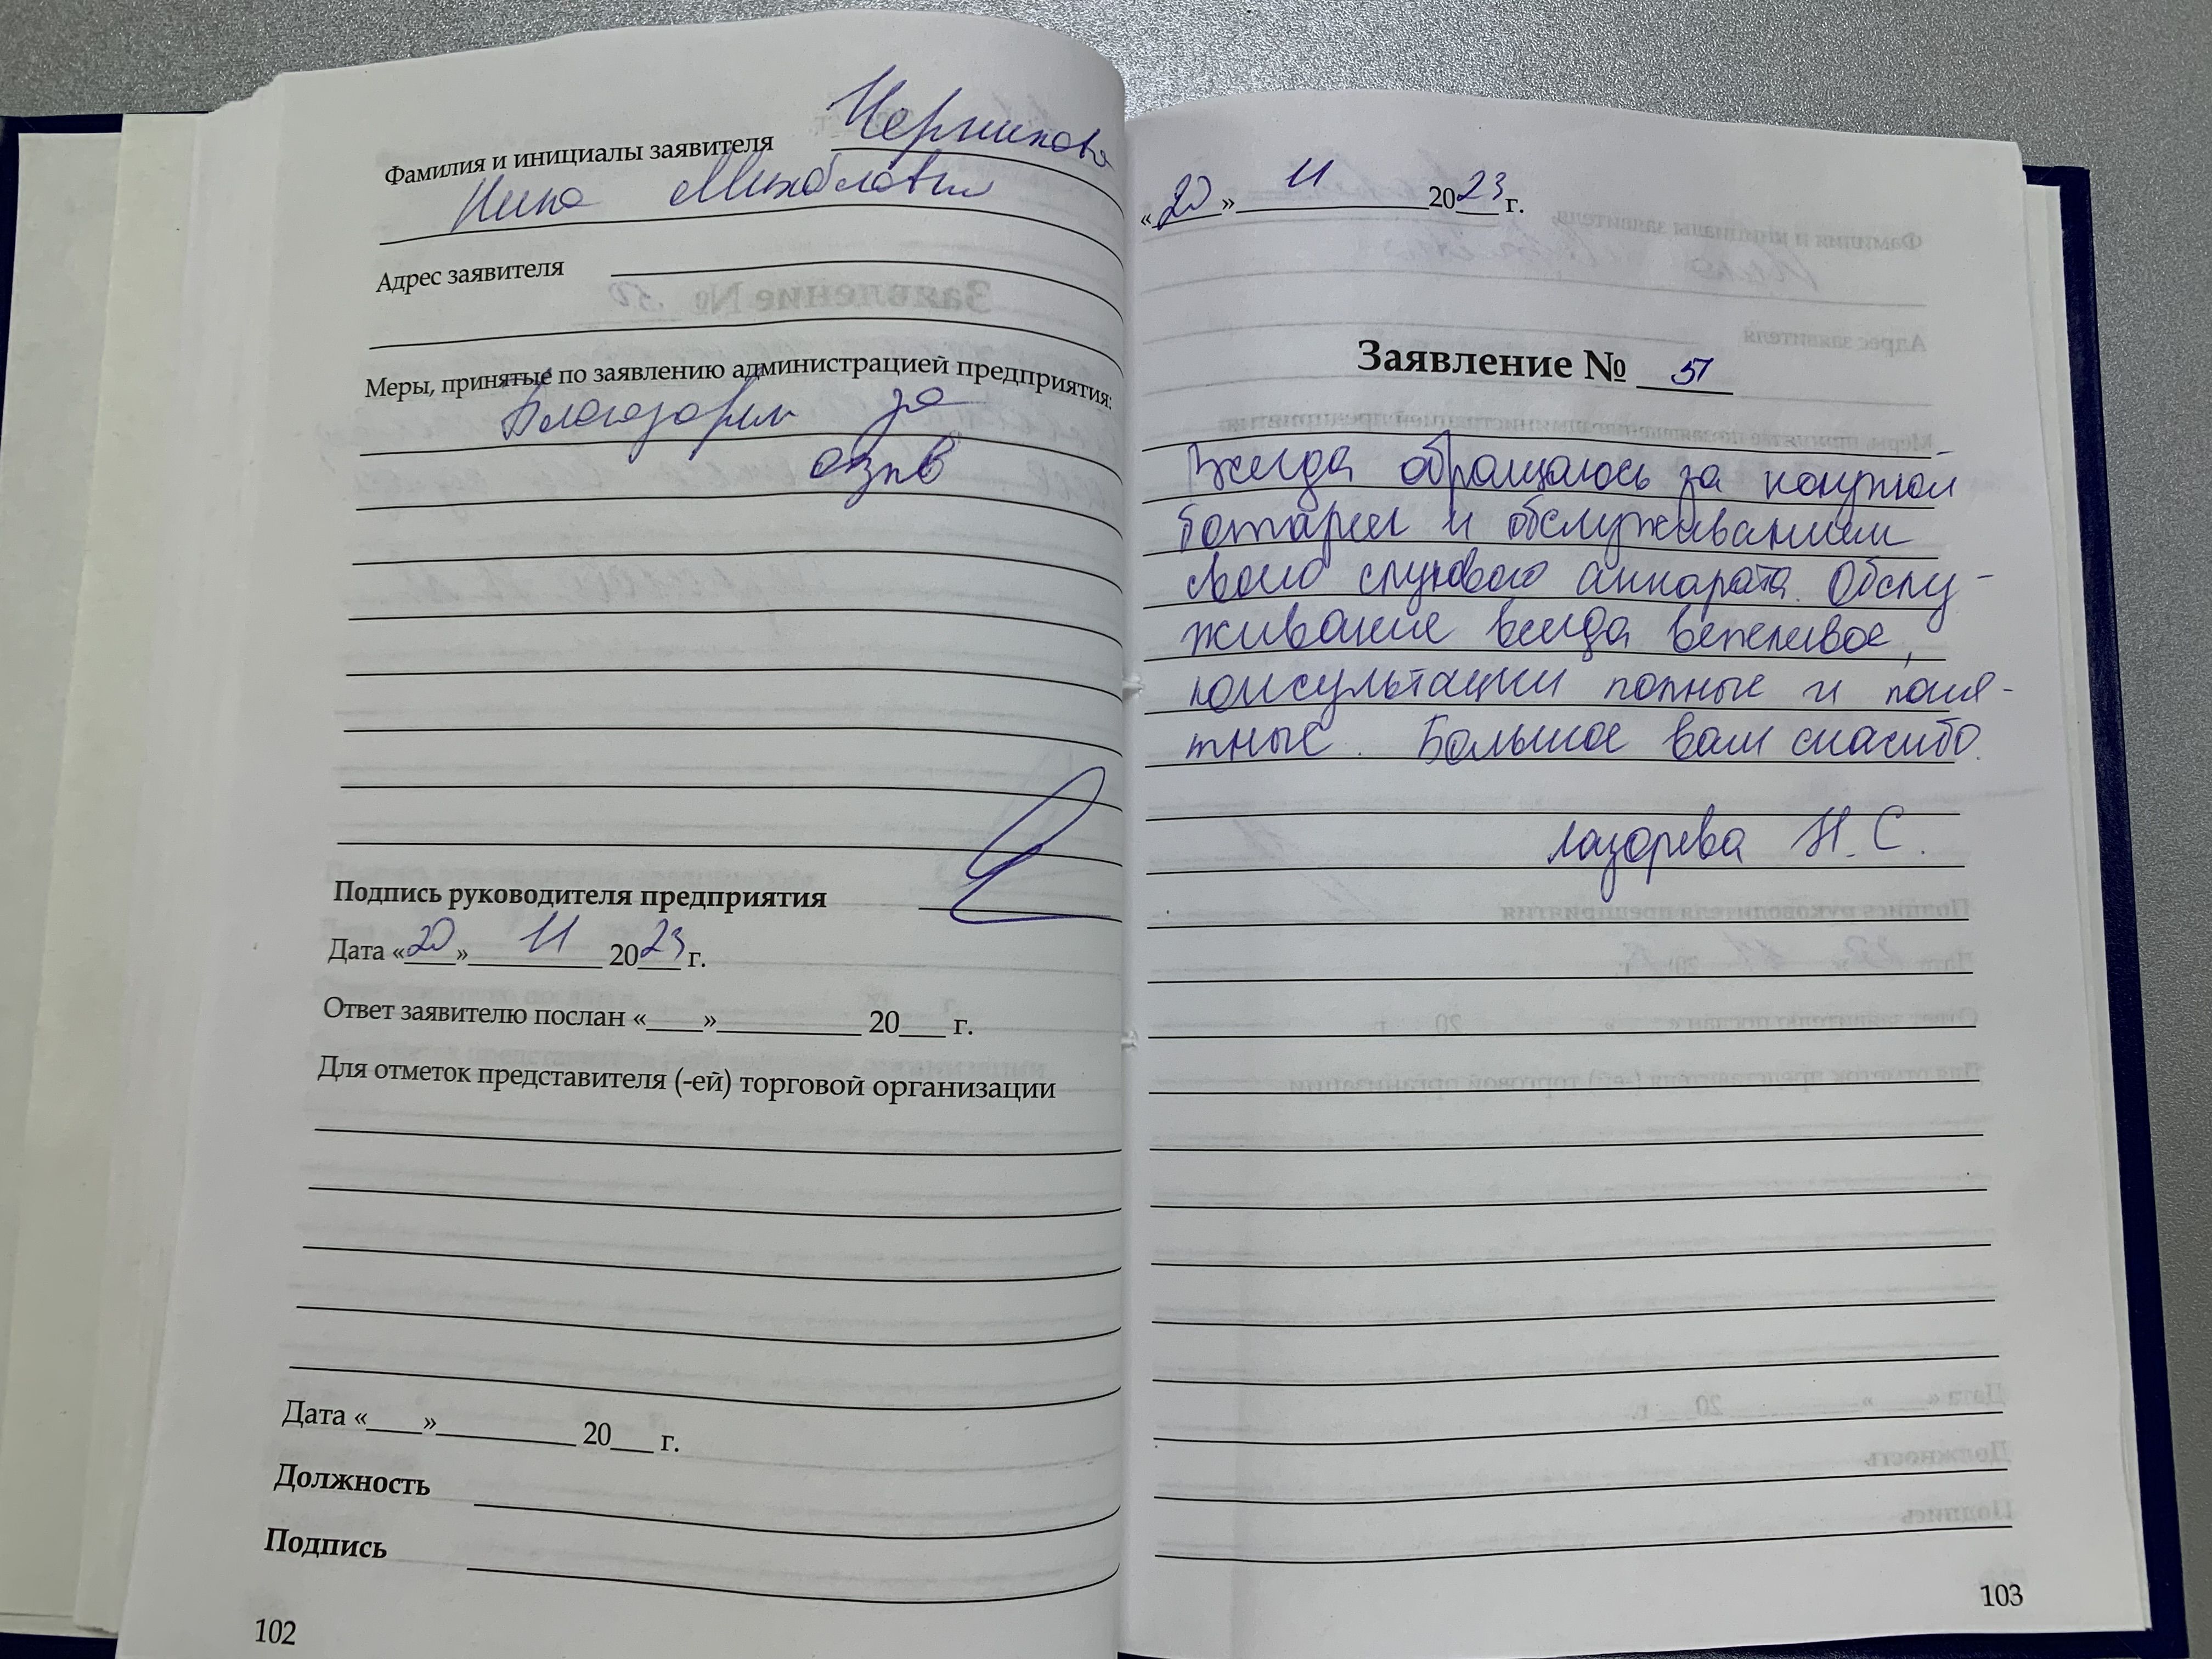 Фамилия и инициалы заявителя Черникова
Нина Михайловна
Адрес заявителя
Меры, принятые по заявлению администрацией предприятия:
Благодарим за
отзыв
Подпись руководителя предприятия
Дата «20» 11 2023 г.
Ответ заявителю послан «___»__________ 20___ г.
Для отметок представителя (-ей) торговой организации
Дата «____»__________ 20___ г.
Должность
Подпись
102
«20» 11 2023 г.
Заявление № 51
Всегда обращаюсь за покупкой
батареи и обслуживанием
своего слухового аппарата. Обслу-
живание всегда вежливое,
консультации полные и поня-
тные. Большое вам спасибо.
Лазарева Н.С.
103